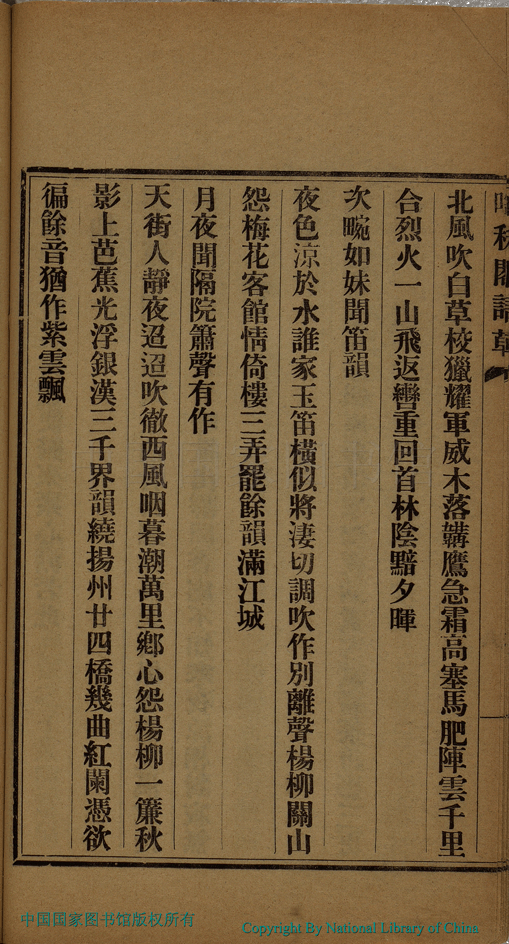 秋閣詩草
北風吹白草校獵耀軍威木落鞲鷹急霜高塞馬肥陣雲千里
合烈火一山飛返轡重回首林陰黯夕暉
次畹如妹聞笛韻
夜色涼於水誰家玉笛橫似將淒切調吹作別離聲楊柳關山
怨梅花客館情倚樓三弄罷餘韻滿江城
月夜聞隔院簫聲有作
天街人靜夜迢迢吹徹西風咽暮潮萬里鄉心怨楊柳一簾秋
影上芭蕉光浮銀漢三千界韻繞揚州廿四橋幾曲紅闌憑欲
徧餘音猶作紫雲飄
中国国家图书馆版权所有
Copyright By National Library of China